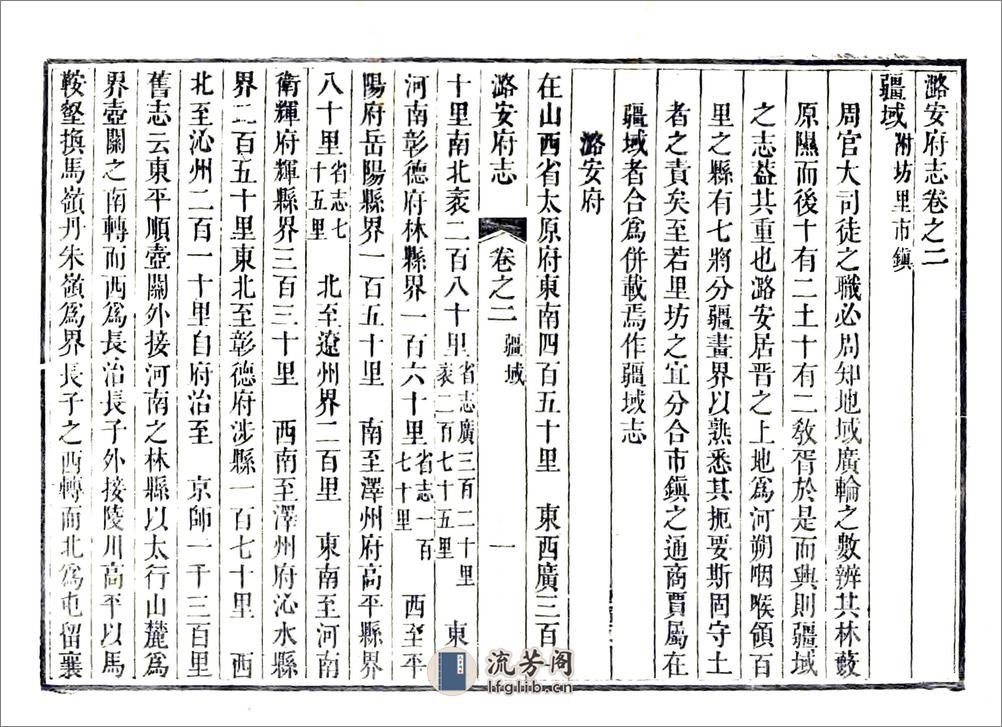 潞安府志卷之二
疆域 附坊里市鎮
周官大司徒之職必周知地域廣輪之數辨其林藪
原隰而後十有二土十有二敎胥於是而興則疆域
之志蓋其重也潞安居晉之上地爲河朔咽喉領百
里之縣有七將分疆畫界以熟悉其扼要斯固守土
者之責矣至若里坊之宜分合市鎮之通商賈屬在
疆域者合爲併載焉作疆域志
潞安府
在山西省太原府東南四百五十里 東西廣三百
潞安府志 卷之二 疆域 一
十里南北袤二百八十里 省志廣三百二十里袤二百七十五里 東
河南彰德府林縣界一百六十里 省志一百七十里 西至平
陽府岳陽縣界一百五十里 南至澤州府高平縣界
八十里 省志七十五里 北至遼州界二百里 東南至河南
衛輝府輝縣界三百三十里 西南至澤州府沁水縣
界二百五十里東北至彰德府涉縣一百七十里 西
北至沁州二百一十里自府治至 京師一千三百里
舊志云東平順壺關外接河南之林縣以太行山麓爲
界壺關之南轉而西爲長治長子外接陵川高平以馬
鞍壑換馬嶺丹朱嶺爲界長子之西轉而北爲屯留襄
流芳阁
lfglib.cn